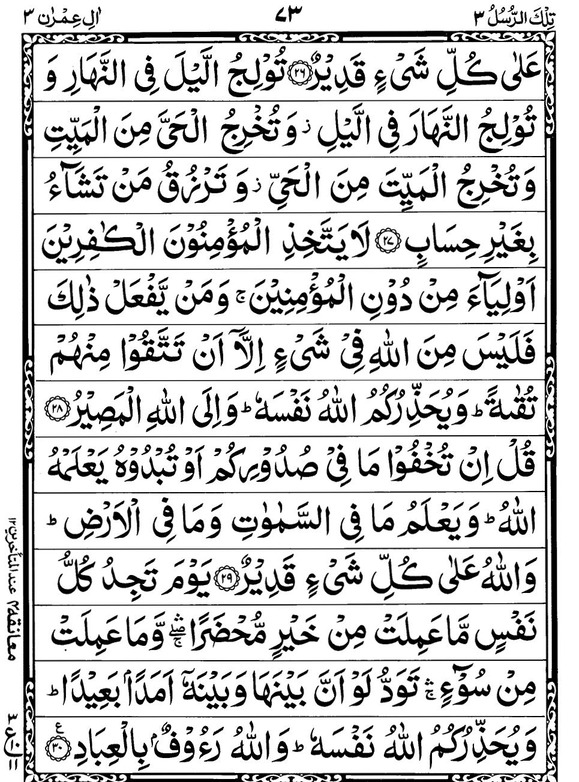 تِلْكَ الرُّسُلُ ٣
٧٣
اٰلِ عِمْرٰن ٣
عَلٰى كُلِّ شَىْءٍ قَدِيْرٌ ﴿٢٦﴾ تُوْلِجُ الَّيْلَ فِى النَّهَارِ وَ
تُوْلِجُ النَّهَارَ فِى الَّيْلِ ز وَ تُخْرِجُ الْحَىَّ مِنَ الْمَيِّتِ
وَ تُخْرِجُ الْمَيِّتَ مِنَ الْحَىِّ ز وَ تَرْزُقُ مَنْ تَشَآءُ
بِغَيْرِ حِسَابٍ ﴿٢٧﴾ لَا يَتَّخِذِ الْمُؤْمِنُوْنَ الْكٰفِرِيْنَ
اَوْلِيَآءَ مِنْ دُوْنِ الْمُؤْمِنِيْنَ ج وَمَنْ يَّفْعَلْ ذٰلِكَ
فَلَيْسَ مِنَ اللهِ فِىْ شَىْءٍ اِلَّاۤ اَنْ تَتَّقُوْا مِنْهُمْ
تُقٰىةً ط وَيُحَذِّرُكُمُ اللهُ نَفْسَهٗ ط وَاِلَى اللهِ الْمَصِيْرُ ﴿٢٨﴾
قُلْ اِنْ تُخْفُوْا مَا فِىْ صُدُوْرِكُمْ اَوْ تُبْدُوْهُ يَعْلَمْهُ
اللهُ ط وَيَعْلَمُ مَا فِى السَّمٰوٰتِ وَمَا فِى الْاَرْضِ ط
وَاللهُ عَلٰى كُلِّ شَىْءٍ قَدِيْرٌ ﴿٢٩﴾ يَوْمَ تَجِدُ كُلُّ
نَفْسٍ مَّا عَمِلَتْ مِنْ خَيْرٍ مُّحْضَرًا ۛ وَّمَا عَمِلَتْ
مِنْ سُوْٓءٍ ۛ تَوَدُّ لَوْ اَنَّ بَيْنَهَا وَبَيْنَهٗۤ اَمَدًاۢ بَعِيْدًا ط
وَيُحَذِّرُكُمُ اللهُ نَفْسَهٗ ط وَاللهُ رَءُوْفٌۢ بِالْعِبَادِ ﴿٣٠﴾ ع
معانقه ٢ عند المتأخرين ١٢
ع
١٠
١١